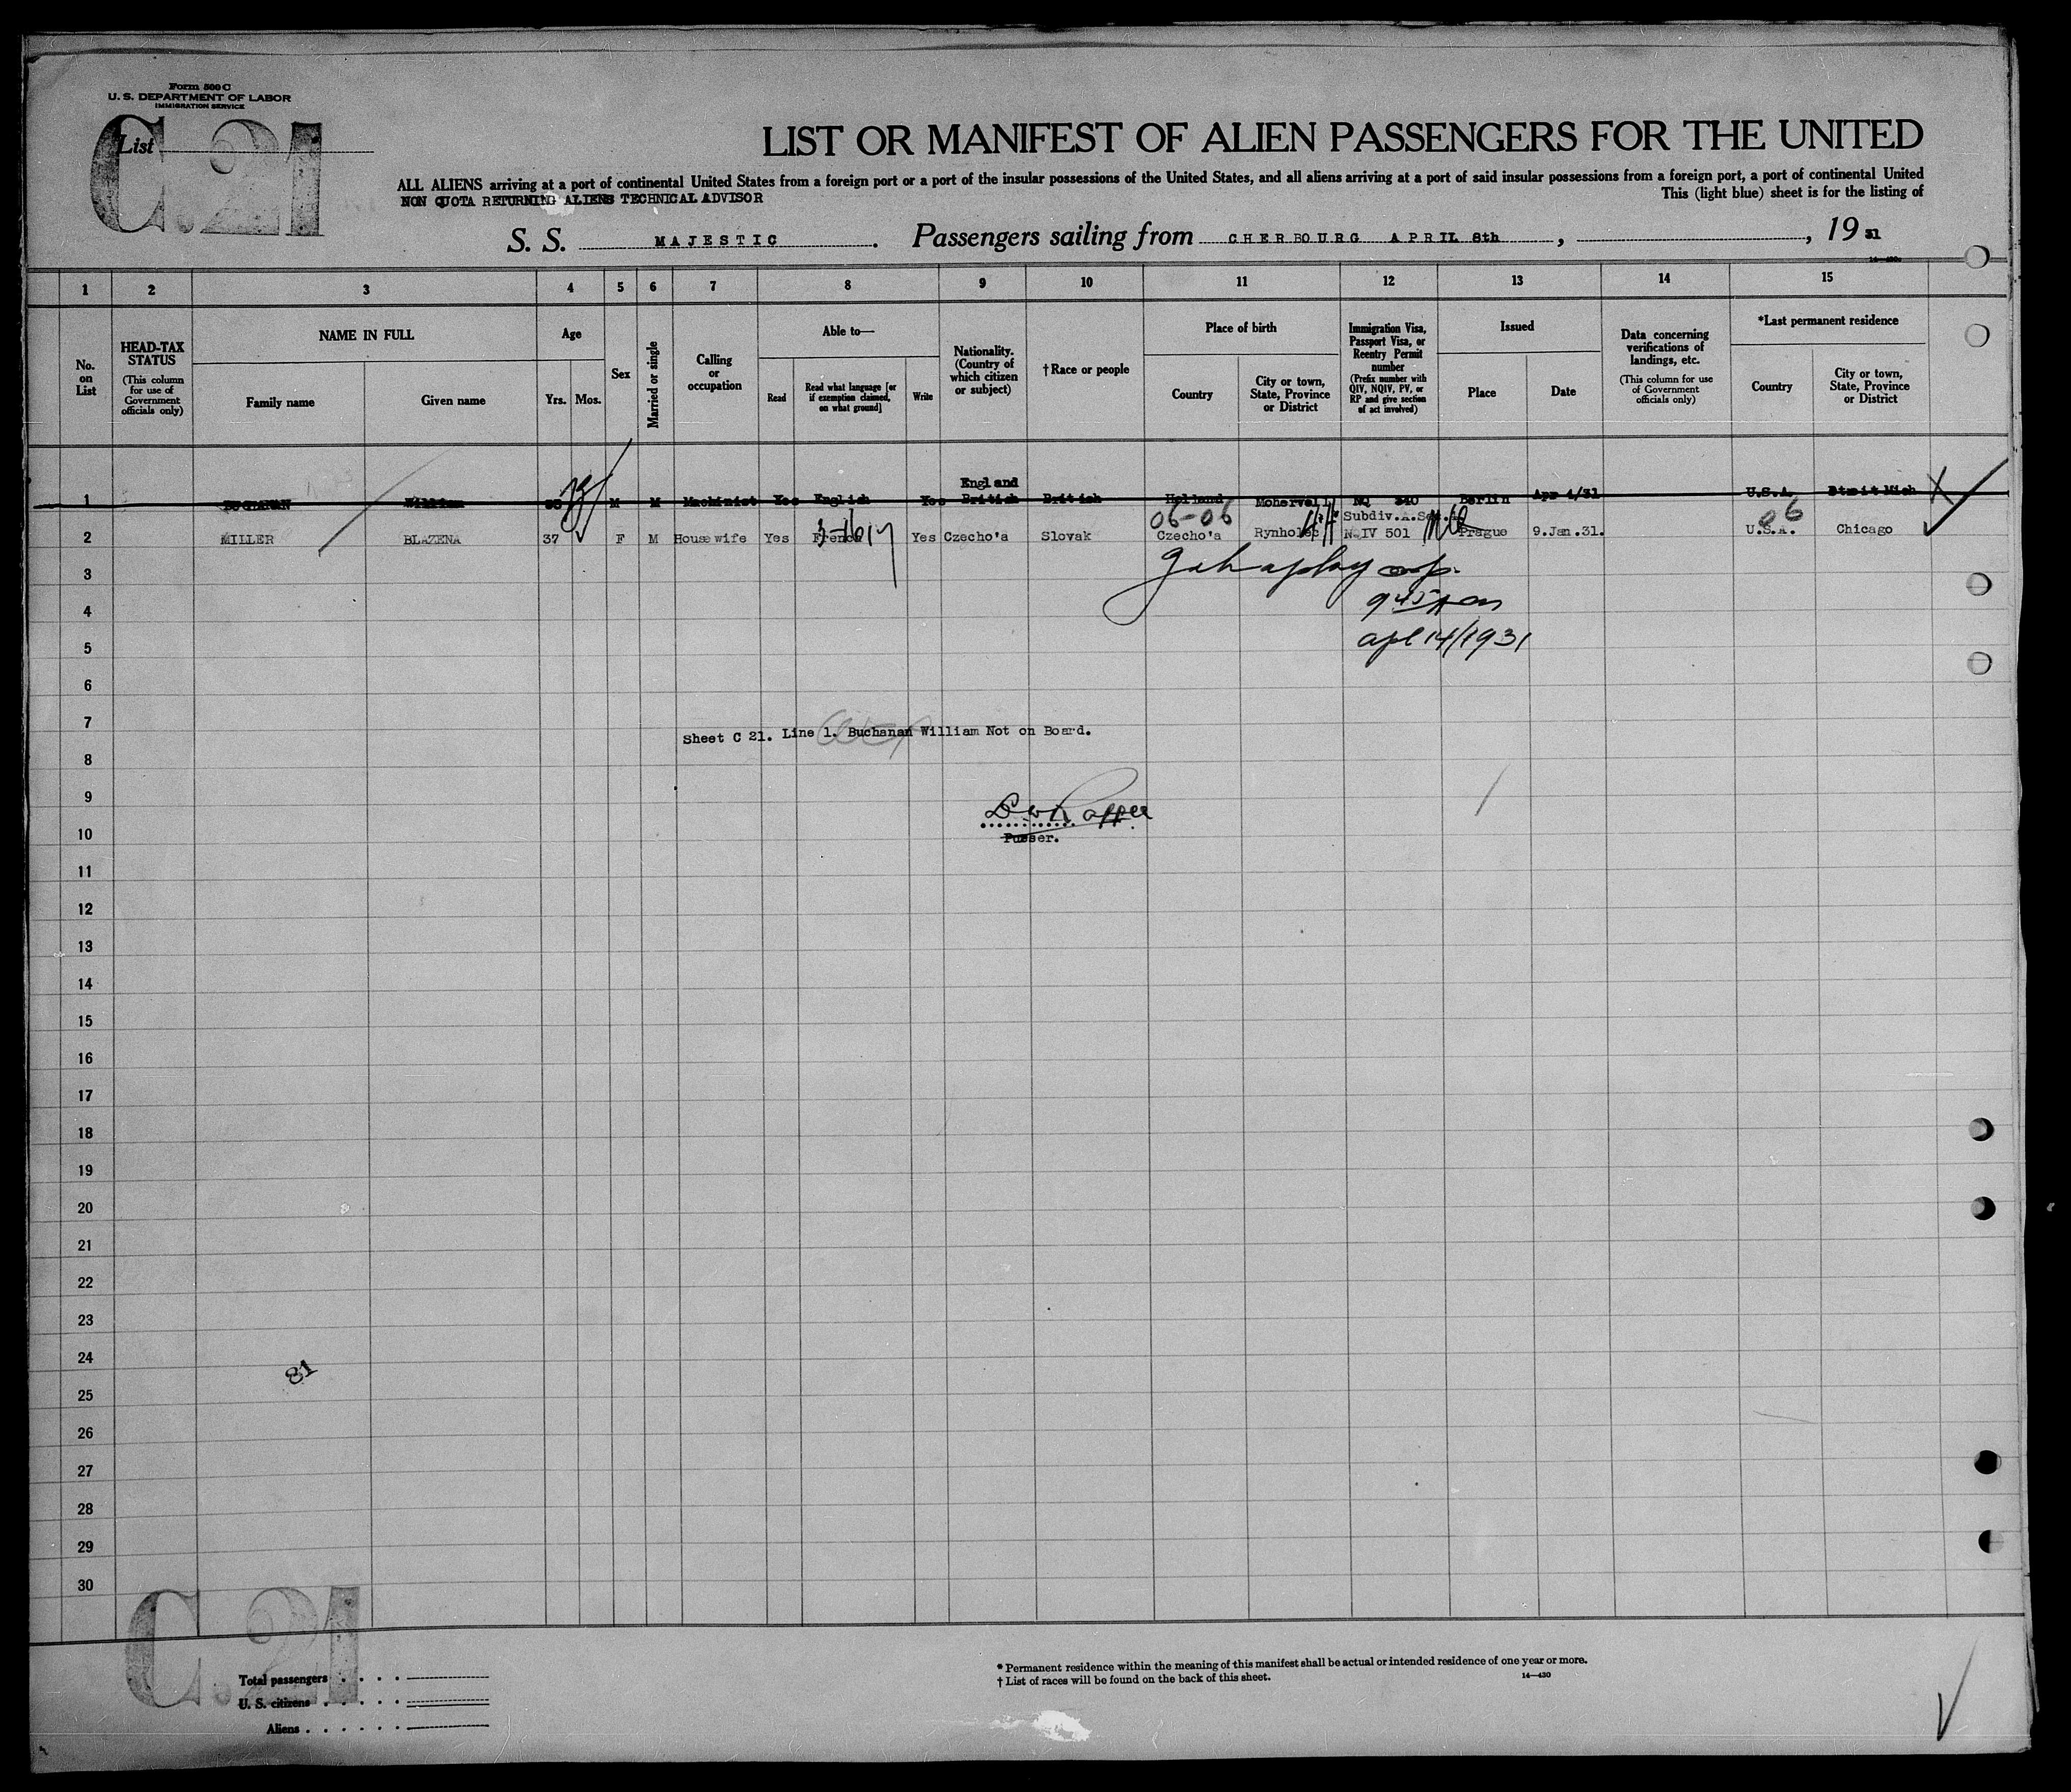 Form 500 C
U. S. DEPARTMENT OF LABOR
IMMIGRATION SERVICE
C.21
List
LIST OR MANIFEST OF ALIEN PASSENGERS FOR THE UNITED
ALL ALIENS arriving at a port of continental United States from a foreign port or a port of the insular possessions of the United States, and all aliens arriving at a port of said insular possessions from a foreign port, a port of continental United
NON QUOTA RETURNING ALIENS TECHNICAL ADVISOR
This (light blue) sheet is for the listing of
S. S. MAJESTIC. Passengers sailing from CHERBOURG APRIL 8th, , 19 31
1 2 3 4 5 6 7 8 9 10 11 12 13 14 15
No. on List
HEAD-TAX STATUS
(This column for use of Government officials only)
NAME IN FULL
Family name
Given name
Age
Yrs. Mos.
Sex
Married or single
Calling or occupation
Able to—
Read
Read what language [or if exemption claimed, on what ground]
Write
Nationality. (Country of which citizen or subject)
†Race or people
Place of birth
Country
City or town, State, Province or District
Immigration Visa, Passport Visa, or Reentry Permit number
(Prefix number with QIV, NQIV, PV, or RP and give section of act involved)
Issued
Place
Date
Data concerning verifications of landings, etc.
(This column for use of Government officials only)
*Last permanent residence
Country
City or town, State, Province or District
England
1 BUCHANAN William M M Machinist Yes English Yes British British Holland NQ 340 Berlin Apr 4/31 U.S.A. Dtroit Mich
06-06 Subdiv.A.Sec. 06
2 MILLER BLAZENA 37 F M Housewife Yes French Yes Czecho'a Slovak Czecho'a Rynholec NQIV 501 Prague 9.Jan.31. U.S.A. Chicago
3
4
945 pm
5
apl 14/1931
6
7
Sheet C 21. Line 1. Buchanan William Not on Board.
8
9
10
Purser.
11
12
13
14
15
16
17
18
19
20
21
22
23
24
81
25
26
27
28
29
30
C.21
Total passengers
U. S. citizens
Aliens
* Permanent residence within the meaning of this manifest shall be actual or intended residence of one year or more.
† List of races will be found on the back of this sheet.
14—430